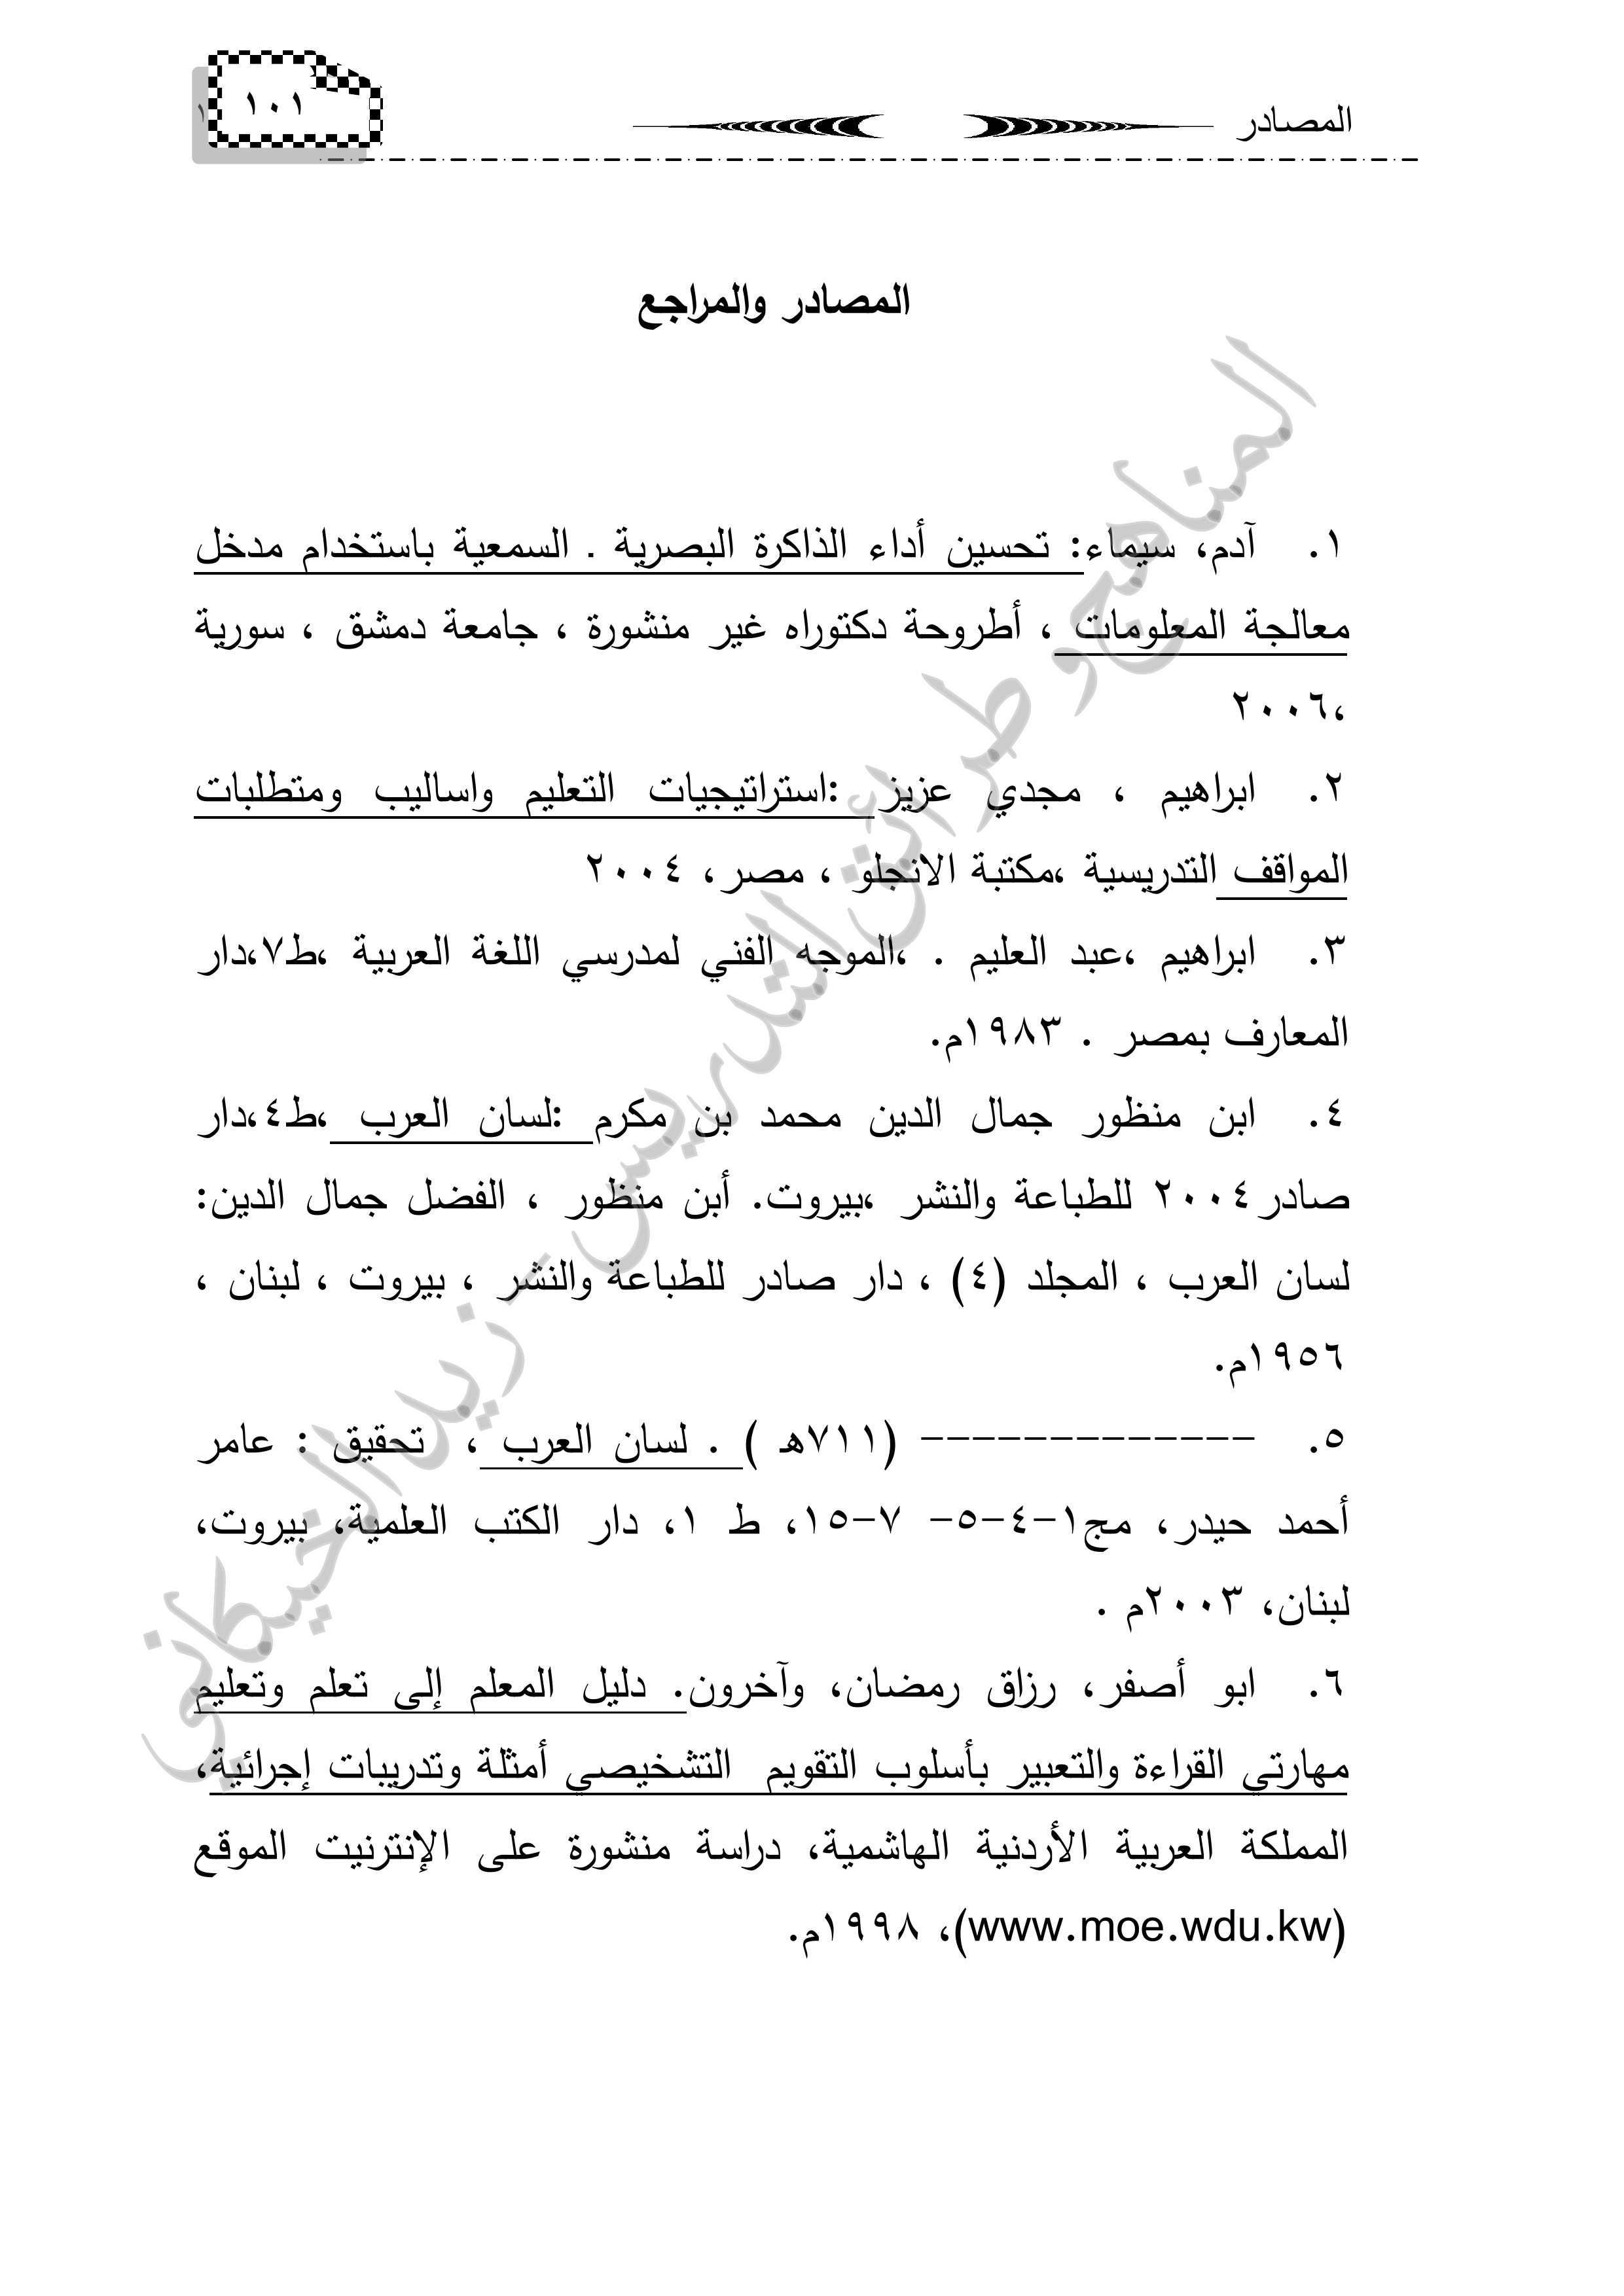 المصادر
١٠١
المصادر والمراجع
١. آدم، سيماء: تحسين أداء الذاكرة البصرية . السمعية باستخدام مدخل
معالجة المعلومات ، أطروحة دكتوراه غير منشورة ، جامعة دمشق ، سورية
،٢٠٠٦
٢. ابراهيم ، مجدي عزيز :استراتيجيات التعليم واساليب ومتطلبات
المواقف التدريسية ،مكتبة الانجلو ، مصر، ٢٠٠٤
٣. ابراهيم ،عبد العليم . ،الموجه الفني لمدرسي اللغة العربية ،ط٧،دار
المعارف بمصر . ١٩٨٣م.
٤. ابن منظور جمال الدين محمد بن مكرم :لسان العرب ،ط٤،دار
صادر٢٠٠٤ للطباعة والنشر ،بيروت. أبن منظور ، الفضل جمال الدين:
لسان العرب ، المجلد (٤) ، دار صادر للطباعة والنشر ، بيروت ، لبنان ،
١٩٥٦م.
٥. ------------- (٧١١هـ ) . لسان العرب ، تحقيق : عامر
أحمد حيدر، مج١-٤-٥- ٧-١٥، ط ١، دار الكتب العلمية، بيروت،
لبنان، ٢٠٠٣م .
٦. ابو أصفر، رزاق رمضان، وآخرون. دليل المعلم إلى تعلم وتعليم
مهارتي القراءة والتعبير بأسلوب التقويم التشخيصي أمثلة وتدريبات إجرائية،
المملكة العربية الأردنية الهاشمية، دراسة منشورة على الإنترنيت الموقع
(www.moe.wdu.kw)، ١٩٩٨م.
المناهج وطرائق التدريس - زيد الخيكاني